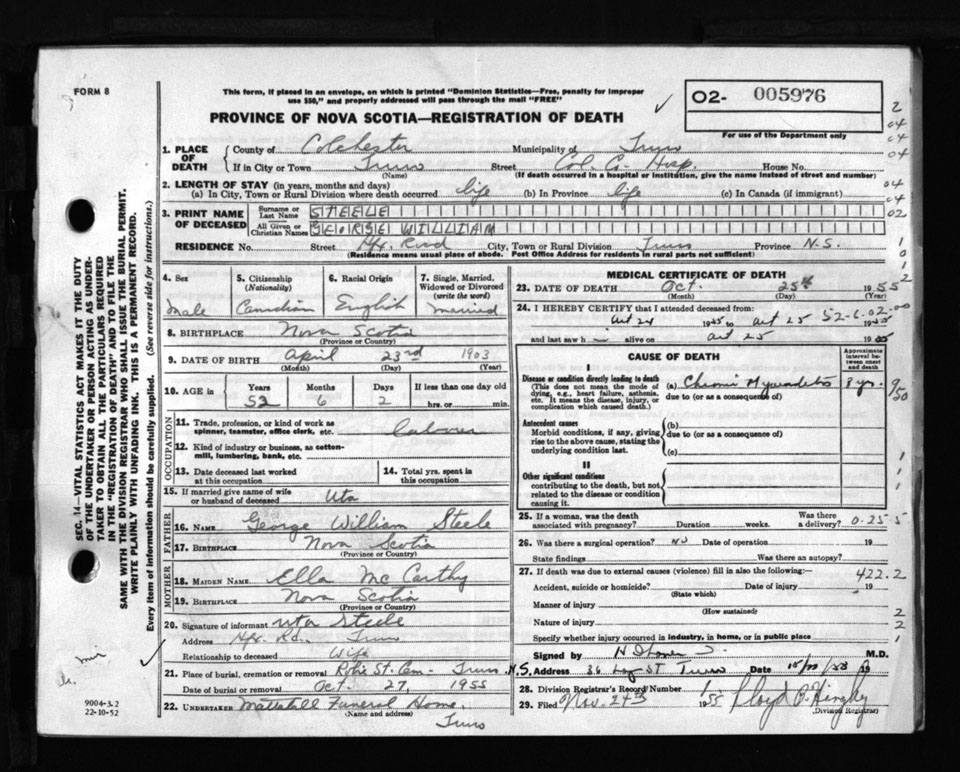 FORM 8
This form, if placed in an envelope, on which is printed "Dominion Statistics—Free, penalty for improper
use $50," and properly addressed will pass through the mail "FREE"
PROVINCE OF NOVA SCOTIA—REGISTRATION OF DEATH
O2- 005976
For use of the Department only
1. PLACE OF DEATH
County of Colchester Municipality of Truro
If in City or Town Truro Street Col. Co. Hosp. House No.
(Name) (If death occurred in a hospital or institution, give the name instead of street and number)
2. LENGTH OF STAY (in years, months and days)
(a) In City, Town or Rural Division where death occurred life (b) In Province life (c) In Canada (if immigrant)
3. PRINT NAME OF DECEASED
Surname or Last Name STEELE
All Given or Christian Names GEORGE WILLIAM
RESIDENCE No. Street Hx. Road City, Town or Rural Division Truro Province N.S.
(Residence means usual place of abode. Post Office Address for residents in rural parts not sufficient)
4. Sex
male
5. Citizenship (Nationality)
Canadian
6. Racial Origin
English
7. Single, Married, Widowed or Divorced (write the word)
married
8. BIRTHPLACE Nova Scotia
(Province or Country)
9. DATE OF BIRTH April 23rd 1903
(Month) (Day) (Year)
10. AGE in
Years Months Days If less than one day old
52 6 2 hrs. or min.
OCCUPATION
11. Trade, profession, or kind of work as spinner, teamster, office clerk, etc. laborer
12. Kind of industry or business, as cotton-mill, lumbering, bank, etc.
13. Date deceased last worked at this occupation
14. Total yrs. spent in this occupation
15. If married give name of wife or husband of deceased Uta
FATHER
16. NAME George William Steele
17. BIRTHPLACE Nova Scotia
(Province or Country)
MOTHER
18. MAIDEN NAME Ella McCarthy
19. BIRTHPLACE Nova Scotia
(Province or Country)
20. Signature of informant Uta Steele
Address Hfx. Rd. Truro
Relationship to deceased Wife
21. Place of burial, cremation or removal Robie St. Cem. Truro N.S.
Date of burial or removal Oct. 27, 1955
22. UNDERTAKER Mattatall Funeral Home
(Name and address)
Truro
MEDICAL CERTIFICATE OF DEATH
23. DATE OF DEATH Oct. 25th 1955
(Month) (Day) (Year)
24. I HEREBY CERTIFY that I attended deceased from:
Oct 24 to Oct 25
and last saw h alive on Oct 25 19
CAUSE OF DEATH
Approximate interval between onset and death
I
Disease or condition directly leading to death
(This does not mean the mode of dying, e.g., heart failure, asthenia, etc. It means the disease, injury, or complication which caused death.)
(a) Chronic Myocarditis 8 yrs.
due to (or as a consequence of)
Antecedent causes
Morbid conditions, if any, giving rise to the above cause, stating the underlying condition last.
(b)
due to (or as a consequence of)
(c)
II
Other significant conditions
contributing to the death, but not related to the disease or condition causing it.
25. If a woman, was the death associated with pregnancy? Duration weeks. Was there a delivery?
0-25 5
26. Was there a surgical operation? NO Date of operation 19
State findings Was there an autopsy?
27. If death was due to external causes (violence) fill in also the following:—
422.2
Accident, suicide or homicide? Date of injury 19
(State which)
Manner of injury
(How sustained)
Nature of injury
Specify whether injury occurred in industry, in home, or in public place
Signed by M.D.
Address 36 St Truro Date 19
28. Division Registrar's Record Number
29. Filed Nov. 1955 Floyd
(Division Registrar)
SEC. 14—VITAL STATISTICS ACT MAKES IT THE DUTY
OF THE UNDERTAKER OR PERSON ACTING AS UNDER-
TAKER TO OBTAIN ALL THE PARTICULARS REQUIRED
IN THE "REGISTRATION OF DEATH" AND TO FILE THE
SAME WITH THE DIVISION REGISTRAR WHO SHALL ISSUE THE BURIAL PERMIT.
WRITE PLAINLY WITH UNFADING INK. THIS IS A PERMANENT RECORD.
Every item of information should be carefully supplied. (See reverse side for instructions.)
9004-3.2
22-10-52